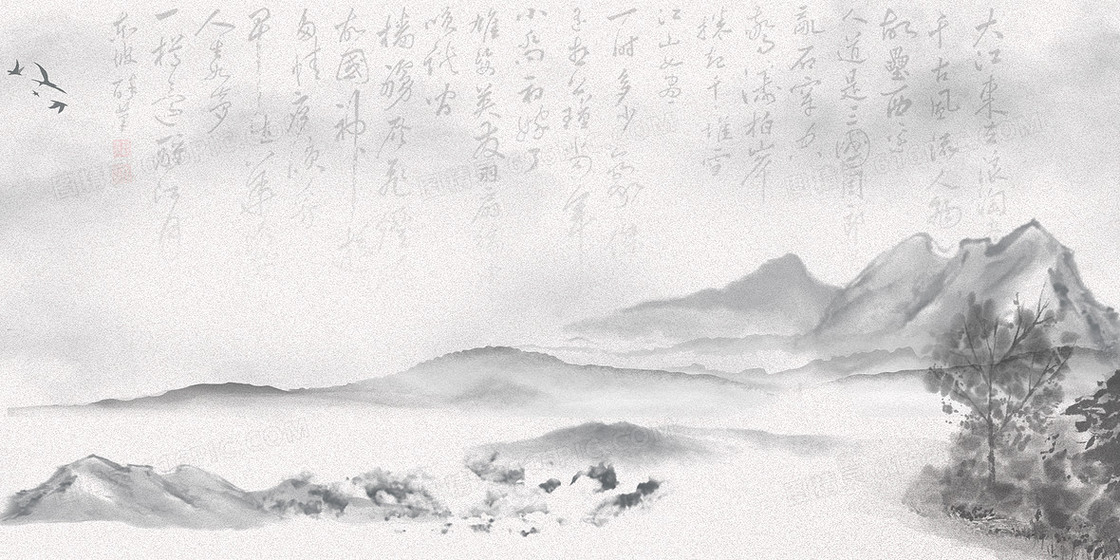 大江東去浪淘
千古風流人物
故壘西邊
人道是三國周郎
亂石穿空
驚濤拍岸
捲起千堆雪
江山如畫
一時多少豪傑
遙想公瑾當年
小喬初嫁了
雄姿英發羽扇綸
談間
檣櫓飛煙
故國神遊
多情應笑我
早生華
人生如夢
一樽還酹江月
東坡醉筆
图精灵 616PIC.COM